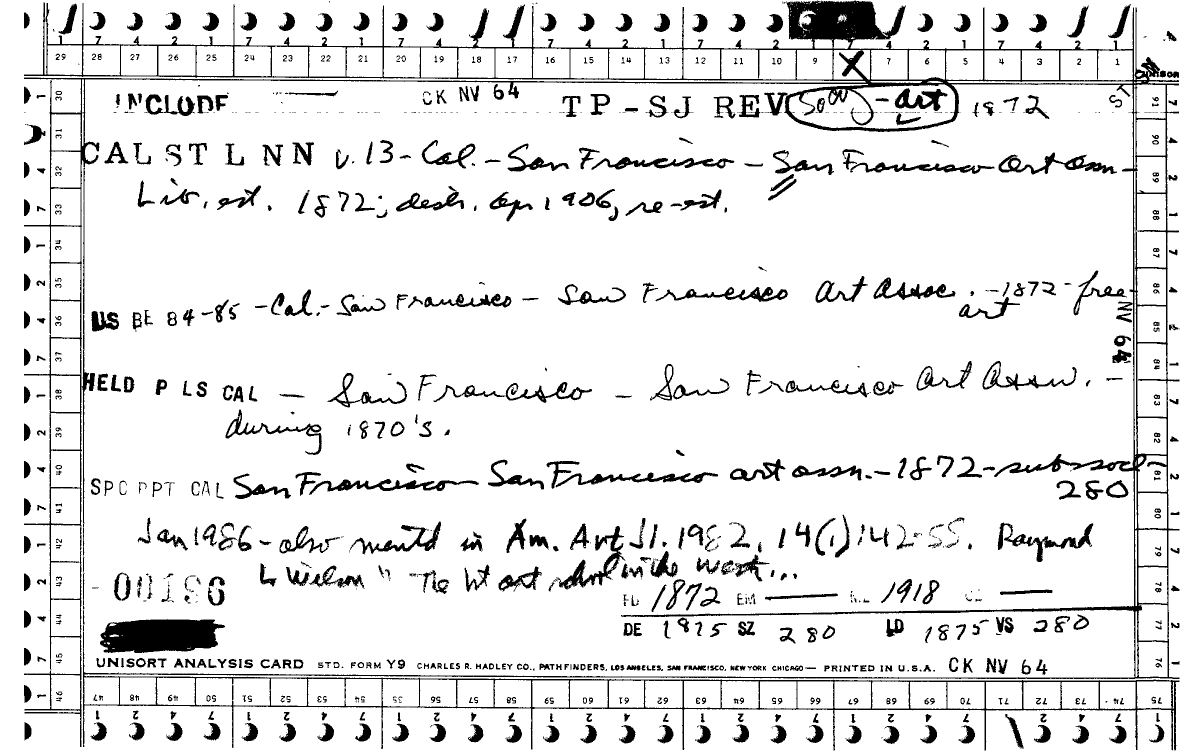 7 4 2 1 7 4 2 1 7 4 2 1 7 4 2 1 7 4 2 1 7 4 2 1 7 4 2 1
29 28 27 26 25 24 23 22 21 20 19 18 17 16 15 14 13 12 11 10 9 8 7 6 5 4 3 2 1
INCLUDE CK NV 64 TP-SJ REV Socy - art 1872
CAL ST L NN v. 13 - Cal. - San Francisco - San Francisco Art Assn -
Lib. est. 1872; destr. Apr 1906, re-est.
US BE 84-85 - Cal. - San Francisco - San Francisco Art Assoc. - 1872 - free -
art
NV 64
HELD P LS CAL - San Francisco - San Francisco Art Assn. -
during 1870's.
SPC RPT CAL San Francisco - San Francisco art assn. - 1872 - sub - socl -
280
Jan 1986 - also mentd in Am. Art Jl. 1982, 14(1):42-55. Raymond
L. Wilson "The 1st art school in the West...
00186
FD 1872 EM — ML 1918 — 
DE 1875 SZ 280 LD 1875 VS 280
UNISORT ANALYSIS CARD STD. FORM Y9 CHARLES R. HADLEY CO., PATHFINDERS, LOS ANGELES, SAN FRANCISCO, NEW YORK CHICAGO — PRINTED IN U.S.A. CK NV 64
30 31 32 33 34 35 36 37 38 39 40 41 42 43 44 45 46
91 90 89 88 87 86 85 84 83 82 81 80 79 78 77 76
47 48 49 50 51 52 53 54 55 56 57 58 59 60 61 62 63 64 65 66 67 68 69 70 71 72 73 74 75